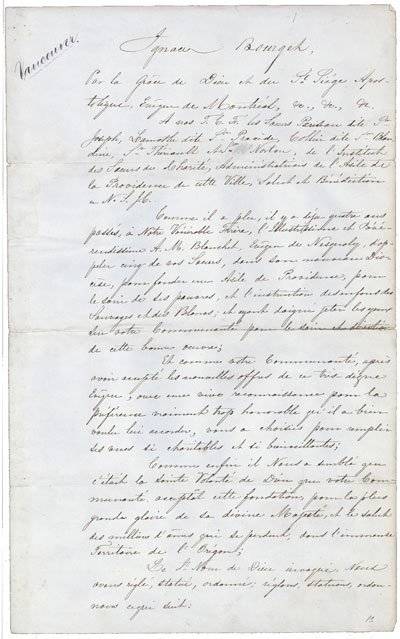 Vancouver.
Ignace Bourget,
Par la Grâce de Dieu et du St. Siège Apos-
tolique, Evêque de Montréal, &c., &c., &c.
A nos T. C. F. les Sœurs dite St.
Joseph, Lamothe dite St. Praxède, Collin dite St. Blan-
dine, St. Norton, de l'Institut
des Sœurs de Charité, Administratrices de l'Asile de
la Providence de cette Ville, Salut et Bénédiction
en N. S. J. C.
Comme il a plu, il y a déja quatre ans
passés, à Notre Vénérable Frère, l'Illustrissime et Révé-
rendissime A. M. Blanchet, Evêque de Nesqualy, d'ap-
peler cinq de vos Sœurs, dans son nouveau Dio-
cèse, pour fonder un Asile de Providence, pour
le soin des pauvres, et l'instruction des enfans des
Sauvages et des Blancs; et ayant daigné jeter les yeux
sur votre Communauté pour le soin et direction
de cette bonne œuvre;
Et comme votre Communauté, après
avoir accepté les nouvelles offres de ce très digne
Evêque, avec une vive reconnaissance pour la
préférence vraiment trop honorable qu'il a bien
voulu lui accorder, vous a choisies pour remplir
ses vues si charitables et si bienveillantes;
Comme enfin il Nous a semblé que
c'était la Sainte Volonté de Dieu que votre Com-
munauté acceptât cette fondation, pour la plus
grande gloire de sa divine Majesté, et le salut
des millions d'âmes qui se perdent, dans l'immense
Territoire de l'Orégon;
Le St. Nom de Dieu invoqué, Nous
avons réglé, statué, ordonné; réglons, statuons, ordon-
nons ce qui suit: